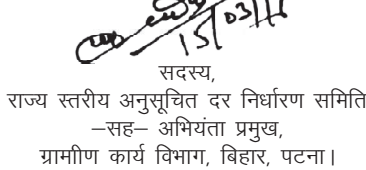 15/03/11
सदस्य,
राज्य स्तरीय अनुसूचित दर निर्धारण समिति
–सह– अभियंता प्रमुख,
ग्रामीाण कार्य विभाग, बिहार, पटना।